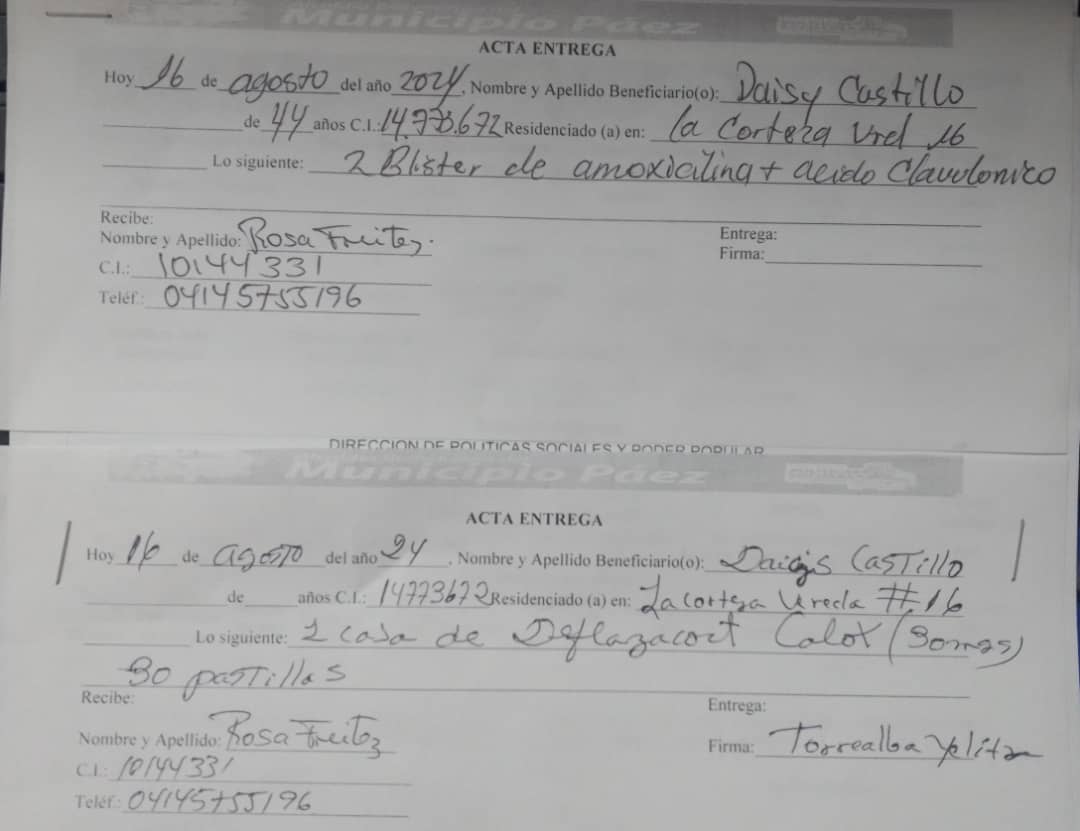 Municipio Páez
ACTA ENTREGA
Hoy 16 de agosto del año 2024, Nombre y Apellido Beneficiario(o): Daisy Castillo
de 44 años C.I.: 14.773.672 Residenciado (a) en: la Corteza Vrel 16
Lo siguiente: 2 Blister de amoxicilina + acido Clavulonico
Recibe:
Entrega:
Nombre y Apellido: Rosa Freitez.
Firma:
C.I.: 10144331
Teléf.: 04145755196
DIRECCION DE POLITICAS SOCIALES Y PODER POPULAR
Municipio Páez
ACTA ENTREGA
Hoy 16 de agosto del año 24, Nombre y Apellido Beneficiario(o): Castillo
de años C.I.: 14773672 Residenciado (a) en: La corteza Vreda #.16
Lo siguiente: 1 caja de Deflazacort Calox (30mgs)
30 pastillas
Recibe:
Entrega:
Nombre y Apellido: Rosa Freitez
Firma: Torrealba Yelitza
C.I.: 10144331
Teléf.: 04145755196